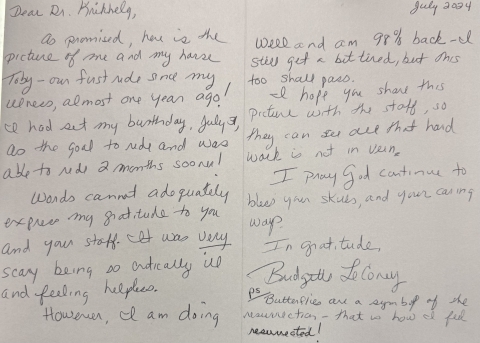 July 2024
Dear Dr. Krikhely,
As promised, here is the
picture of me and my horse
Toby - our first ride since my
illness, almost one year ago!
I had set my birthday, July 31,
as the goal to ride and was
able to ride 2 months sooner!
Words cannot adequately
express my gratitude to you
and your staff. It was very
scary being so critically ill
and feeling helpless.
However, I am doing
well and am 98% back - I
still get a bit tired, but this
too shall pass.
I hope you share this
picture with the staff, so
they can see all that hard
work is not in vein.
I pray God continue to
bless your skills, and your caring
way.
In gratitude,
Bridgette
PS Butterflies are a symbol of the
resurrection - that is how I feel
resurrected!